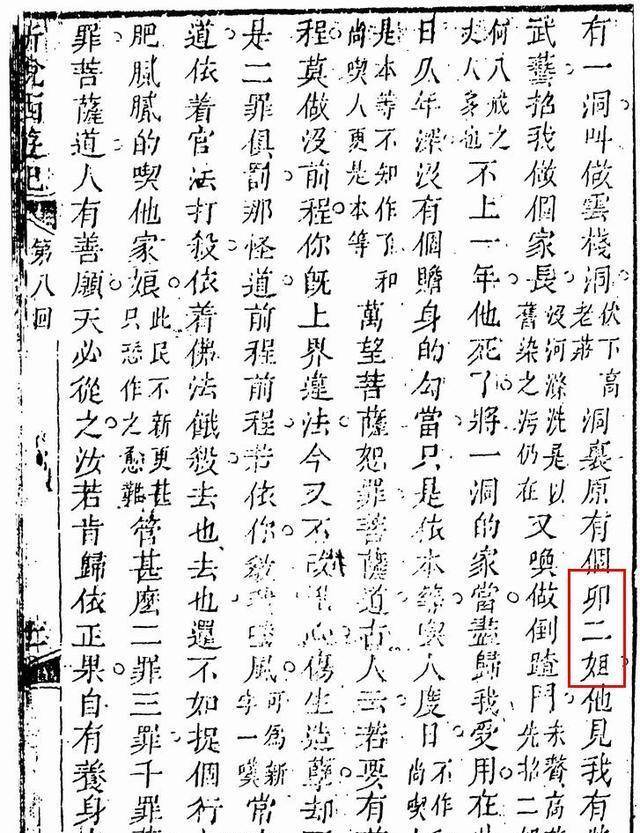 有一洞叫做雲棧洞伏下高老莊洞裏原有個卯二姐他見我有
武藝招我做個家長沒河滌洗是以舊染之污仍在又喚做倒蹅門未贅高先招二
何八戒之丈人多也不上一年他死了將一洞的家當盡歸我受用在
日久年深沒有個贍身的勾當只是依本等喫人度日不作尚喫
是本等不知作了和尚喫人更是本等萬望菩薩恕罪菩薩道古人云若要有
程莫做沒前程你旣上界違法今又不改心傷生造孽却
是二罪俱罰那怪道前程前程若依你風可爲新字一嘆常
道依着官法打殺依着佛法餓殺去也去也還不如捉個行
肥膩膩的喫他家娘此民不新更甚只恐作之愈難管甚麼二罪三罪千罪
罪菩薩道人有善願天必從之汝若肯歸依正果自有養身
新說西遊記 第八回